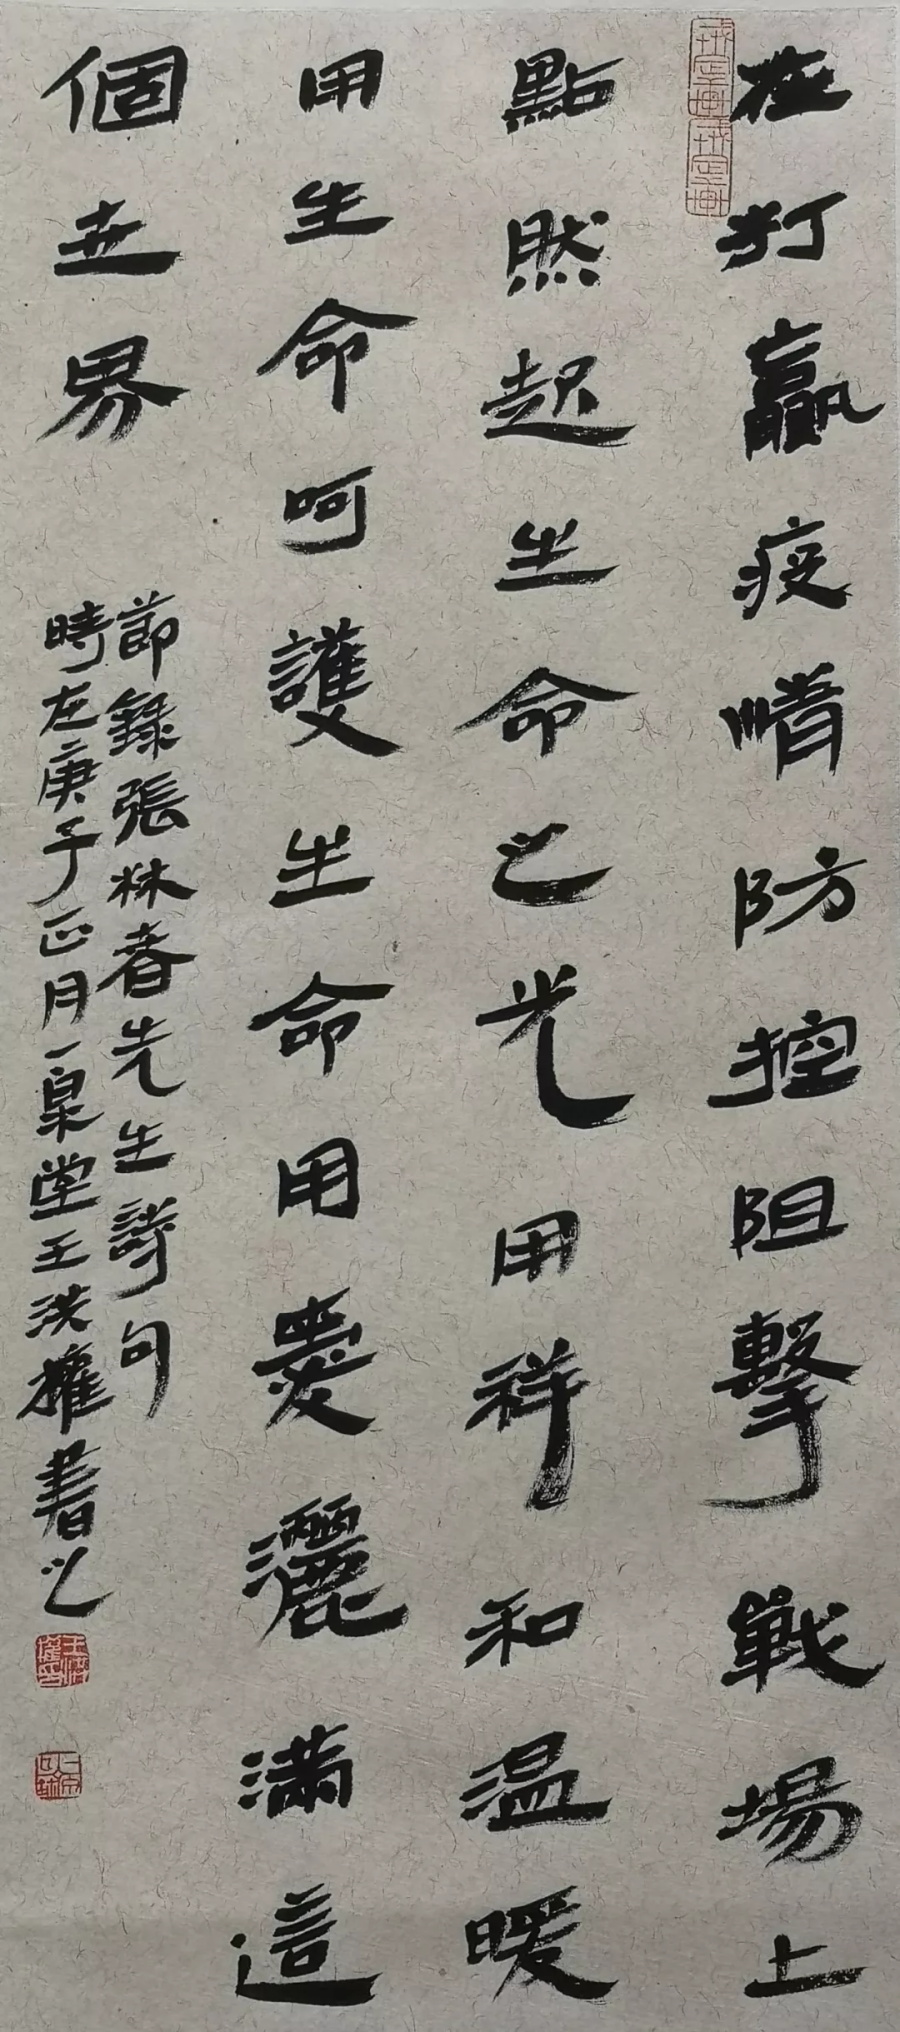 在打贏疫情防控阻擊戰場上
點然起生命之光用祥和温暖
用生命呵護生命用愛灑滿這
個世界
節録張林春先生詩句
時在庚子正月一泉堂王洪權書之